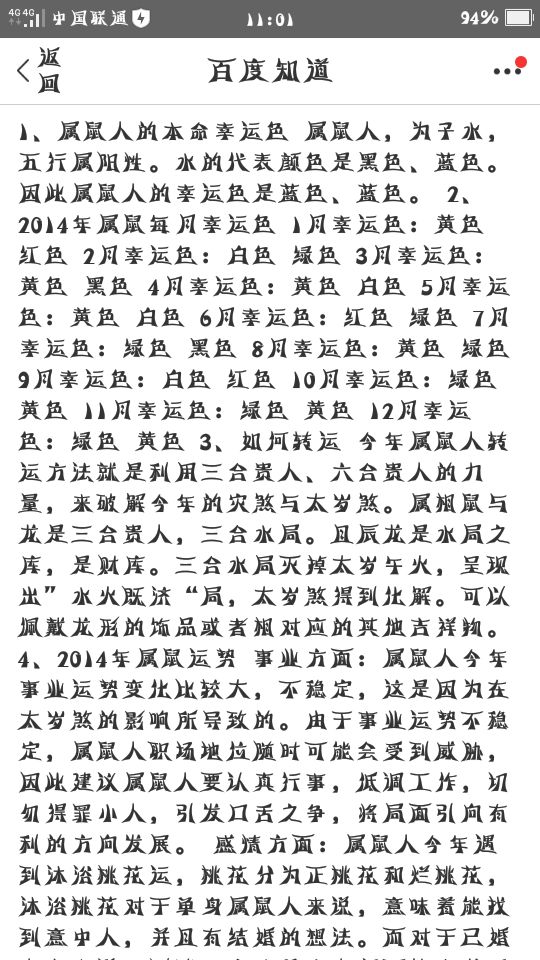 4G 4G 中国联通 11:01 94%
返回 百度知道
1、属鼠人的本命幸运色 属鼠人，为子水，
五行属阳性。水的代表颜色是黑色、蓝色。
因此属鼠人的幸运色是蓝色、蓝色。 2、
2014年属鼠每月幸运色 1月幸运色：黄色
红色 2月幸运色：白色 绿色 3月幸运色：
黄色 黑色 4月幸运色：黄色 白色 5月幸运
色：黄色 白色 6月幸运色：红色 绿色 7月
幸运色：绿色 黑色 8月幸运色：黄色 绿色
9月幸运色：白色 红色 10月幸运色：绿色
黄色 11月幸运色：绿色 黄色 12月幸运
色：绿色 黄色 3、如何转运 今年属鼠人转
运方法就是利用三合贵人、六合贵人的力
量，来破解今年的灾煞与太岁煞。属相鼠与
龙是三合贵人，三合水局。且辰龙是水局之
库，是财库。三合水局灭掉太岁午火，呈现
出”水火既济“局，太岁煞得到化解。可以
佩戴龙形的饰品或者相对应的其他吉祥物。
4、2014年属鼠运势 事业方面：属鼠人今年
事业运势变化比较大，不稳定，这是因为在
太岁煞的影响所导致的。由于事业运势不稳
定，属鼠人职场地位随时可能会受到威胁，
因此建议属鼠人要认真行事，低调工作，切
勿得罪小人，引发口舌之争，将局面引向有
利的方向发展。 感情方面：属鼠人今年遇
到沐浴桃花运，桃花分为正桃花和烂桃花，
沐浴桃花对于单身属鼠人来说，意味着能找
到意中人，并且有结婚的想法。而对于已婚